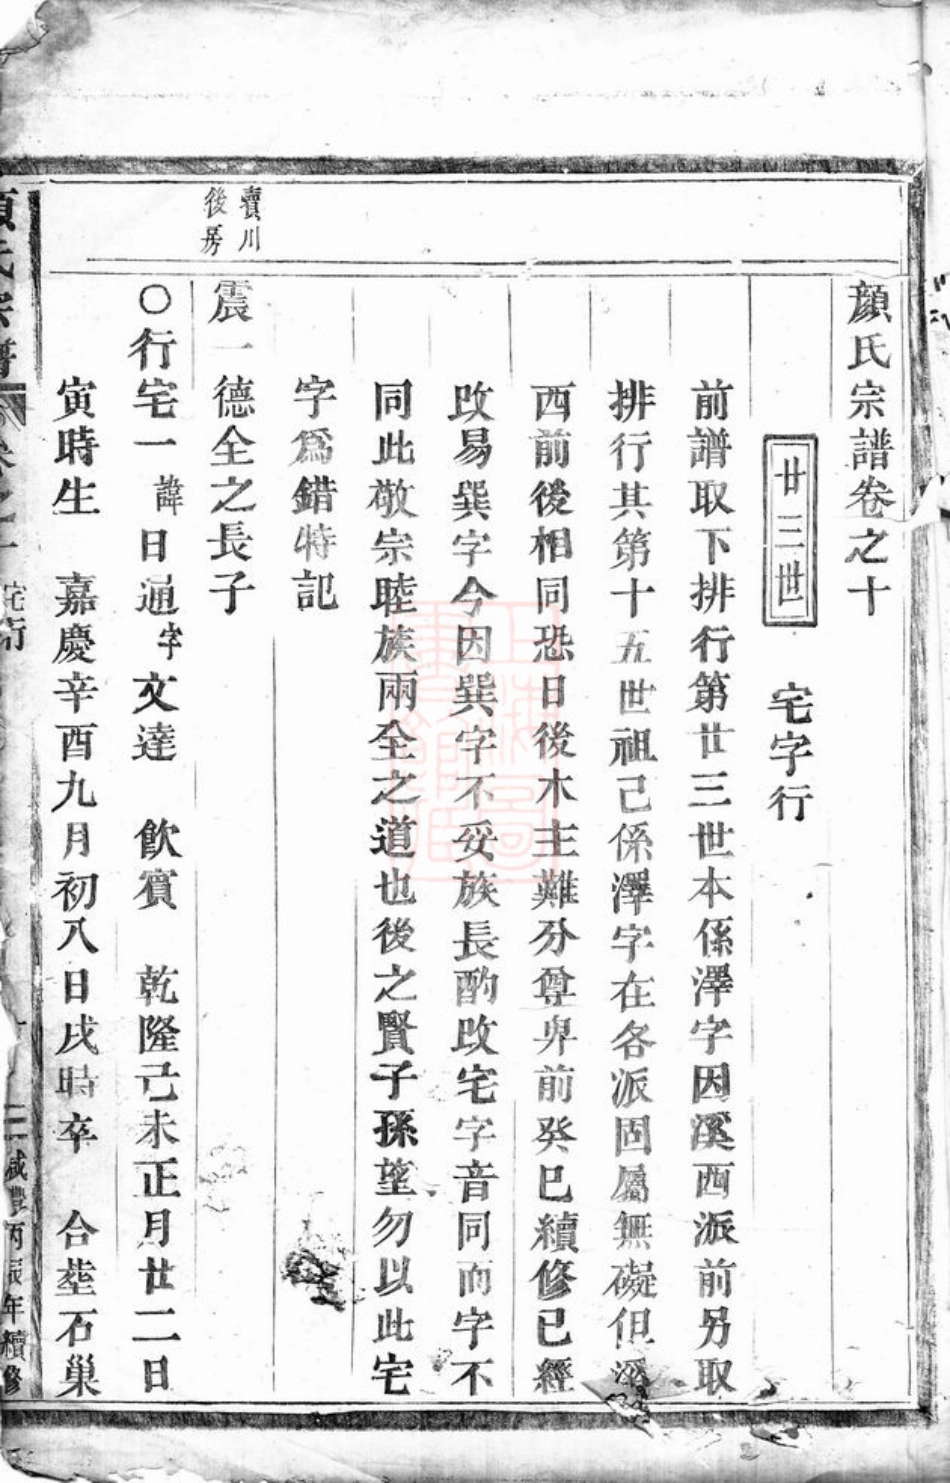 顔氏宗譜卷之十
廿三世　宅字行
前譜取下排行第廿三世本係澤字因溪西派前另取
排行其第十五世祖己係澤字在各派固屬無礙但溪
西前後相同恐日後木主難分尊卑前癸巳續修已經
改易巽字今因巽字不妥族長酌改宅字音同而字不
同此敬宗睦族兩全之道也後之賢子孫望勿以此宅
字爲錯特記
賣川
後房
震一德全之長子
〇行宅一諱日通字文達　飲賓　乾隆己未正月廿二日
寅時生　嘉慶辛酉九月初八日戌時卒　合塟石巢
宅行
咸豐丙辰年續修